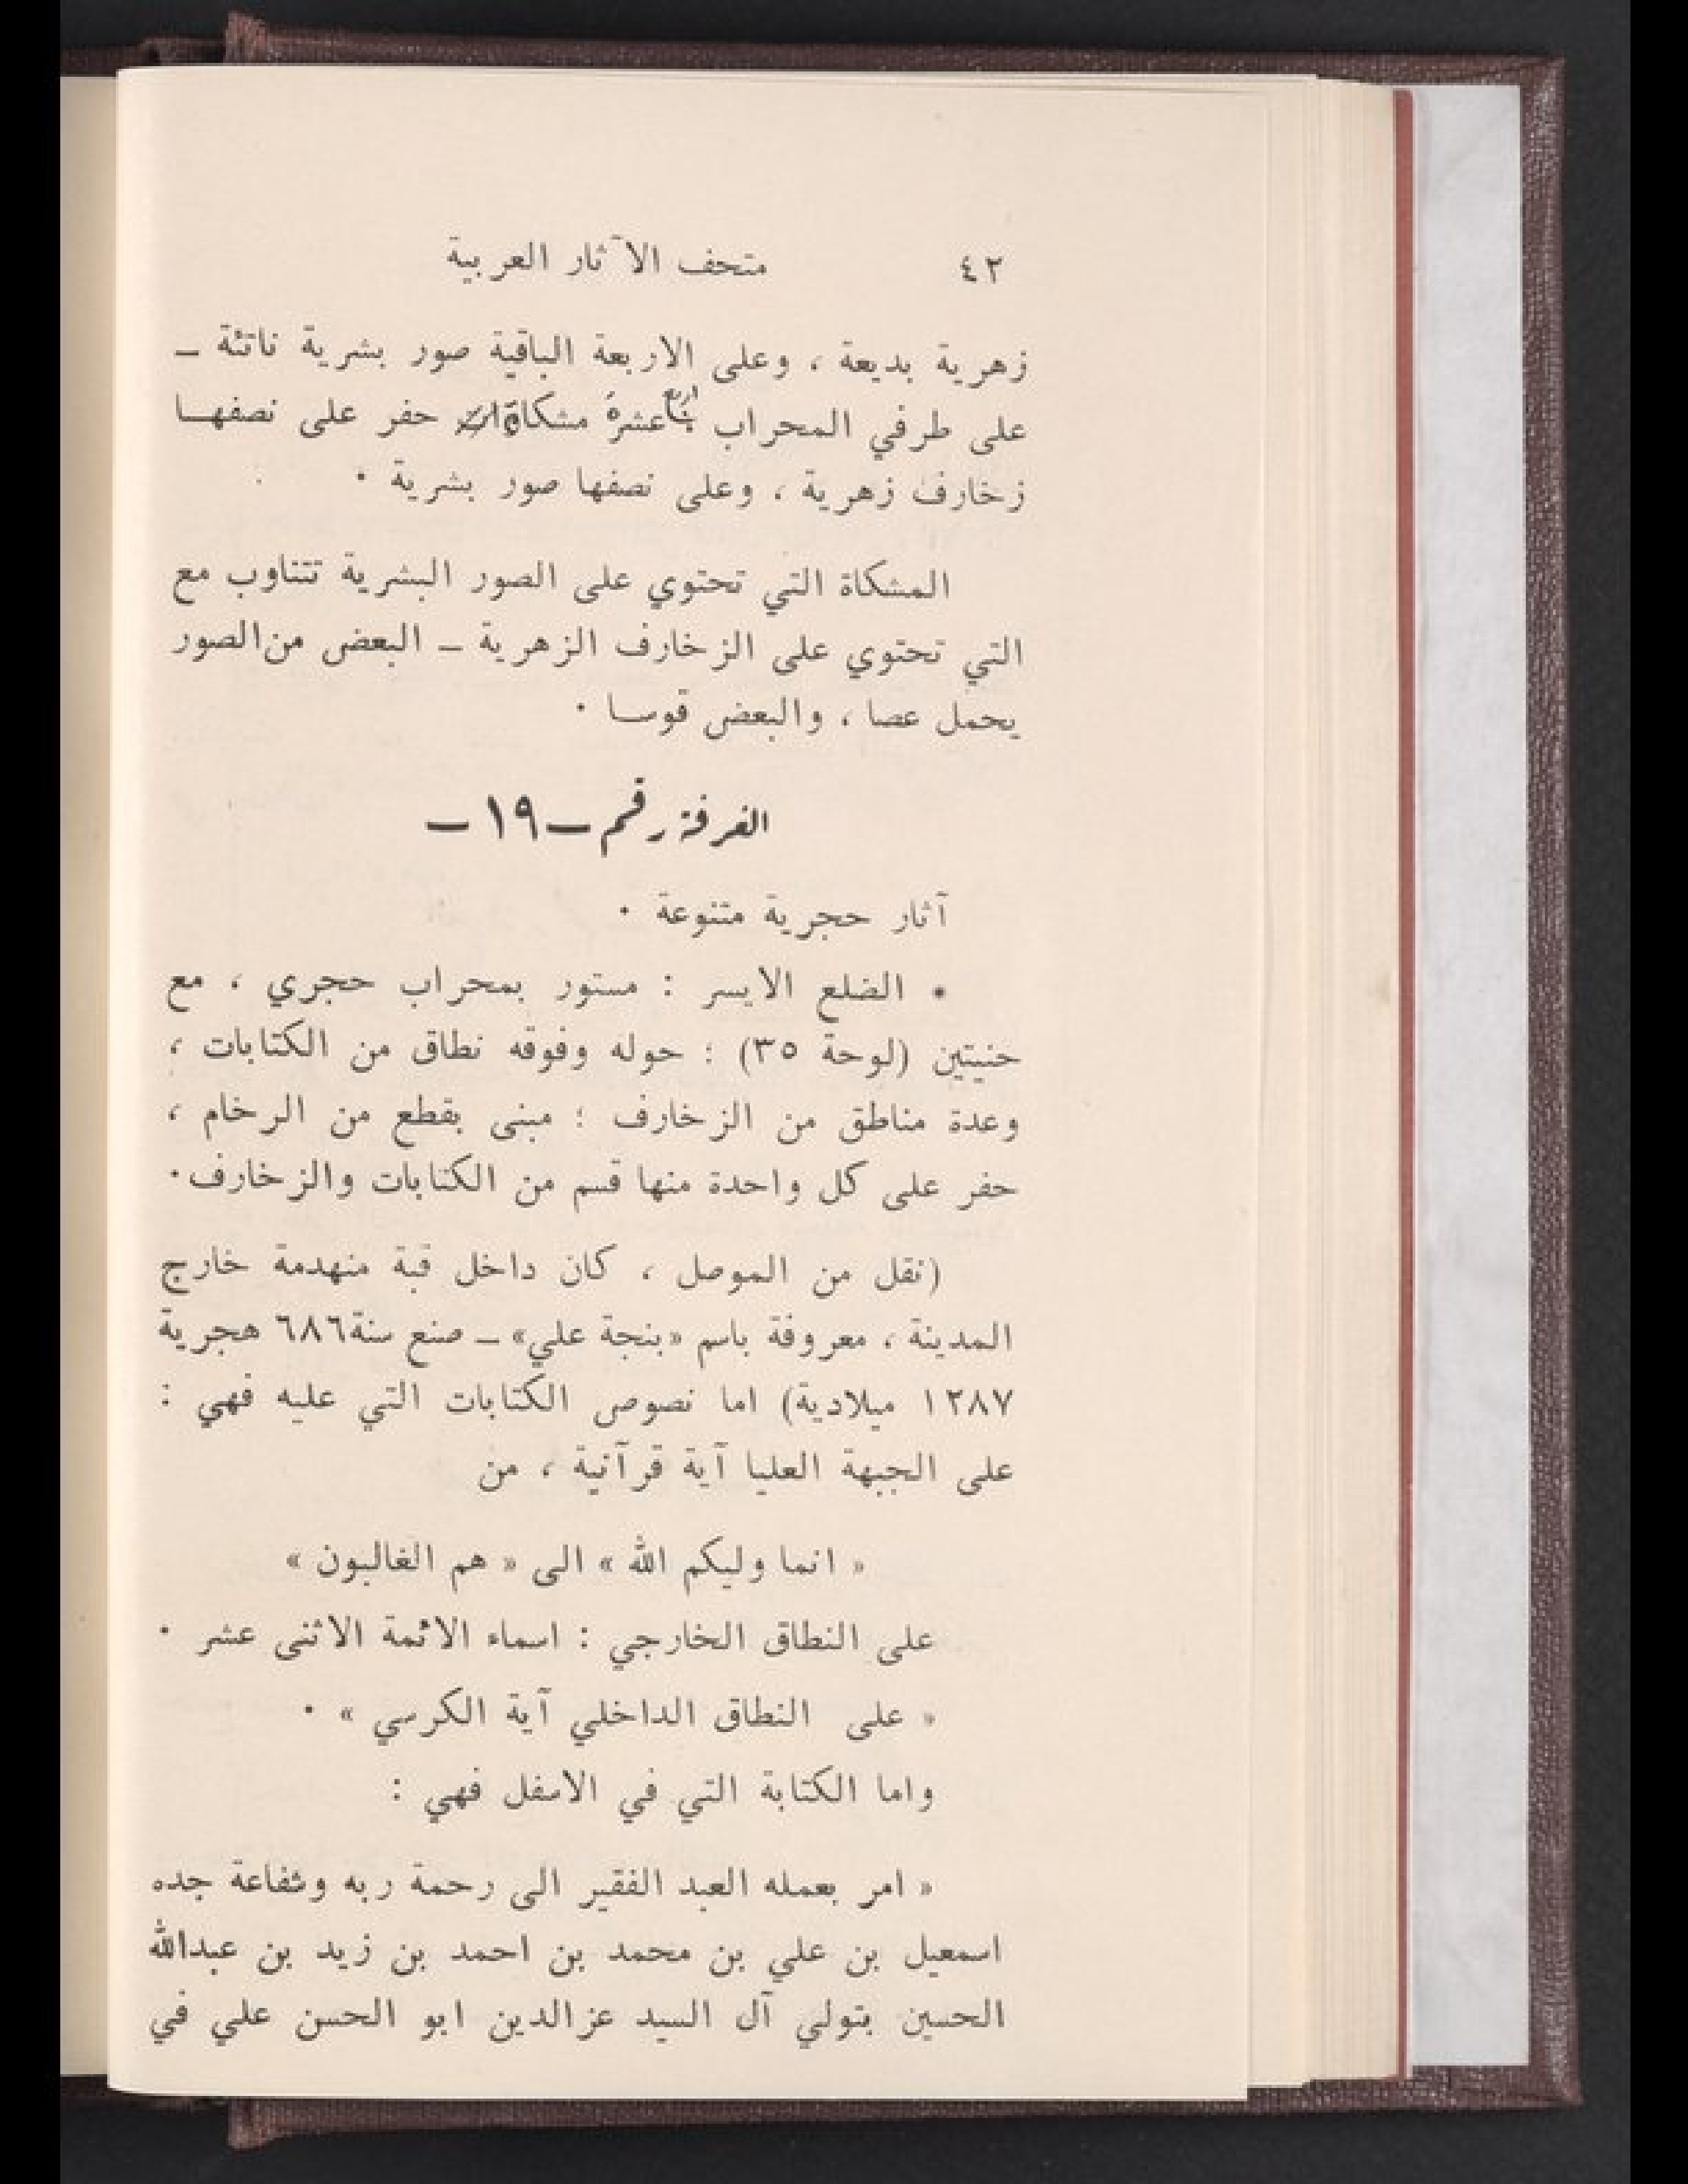 ٤٢ متحف الآثار العربية
زهرية بديعة ، وعلى الاربعة الباقية صور بشرية ناتئة ـ
على طرفي المحراب اربع عشرة مشكاة حفر على نصفهـا
زخارف زهرية ، وعلى نصفها صور بشرية ٠
المشكاة التي تحتوي على الصور البشرية تتناوب مع
التي تحتوي على الزخارف الزهرية ـ البعض من الصور
يحمل عصا ، والبعض قوسـا ٠
الغرفة رقم ـ ١٩ ـ
آثار حجرية متنوعة ٠
* الضلع الايسر : مستور بمحراب حجري ، مع
حنيتين (لوحة ٣٥) : حوله وفوقه نطاق من الكتابات ،
وعدة مناطق من الزخارف ؛ مبنى بقطع من الرخام ،
حفر على كل واحدة منها قسم من الكتابات والزخارف٠
(نقل من الموصل ، كان داخل قبة منهدمة خارج
المدينة ، معروفة باسم «بنجة علي» ـ صنع سنة ٦٨٦ هجرية
١٢٨٧ ميلادية) اما نصوص الكتابات التي عليه فهي :
على الجبهة العليا آية قرآنية ، من
« انما وليكم الله » الى « هم الغالبون »
على النطاق الخارجي : اسماء الائمة الاثنى عشر ٠
« على النطاق الداخلي آية الكرسي » ٠
واما الكتابة التي في الاسفل فهي :
« امر بعمله العبد الفقير الى رحمة ربه وشفاعة جده
اسمعيل بن علي بن محمد بن احمد بن زيد بن عبدالله
الحسين بتولي آل السيد عزالدين ابو الحسن علي في